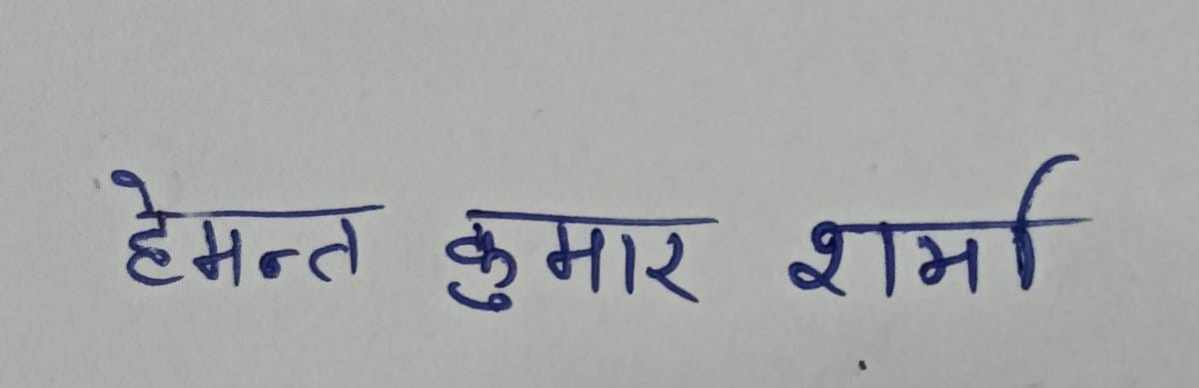 हेमन्त कुमार शर्मा